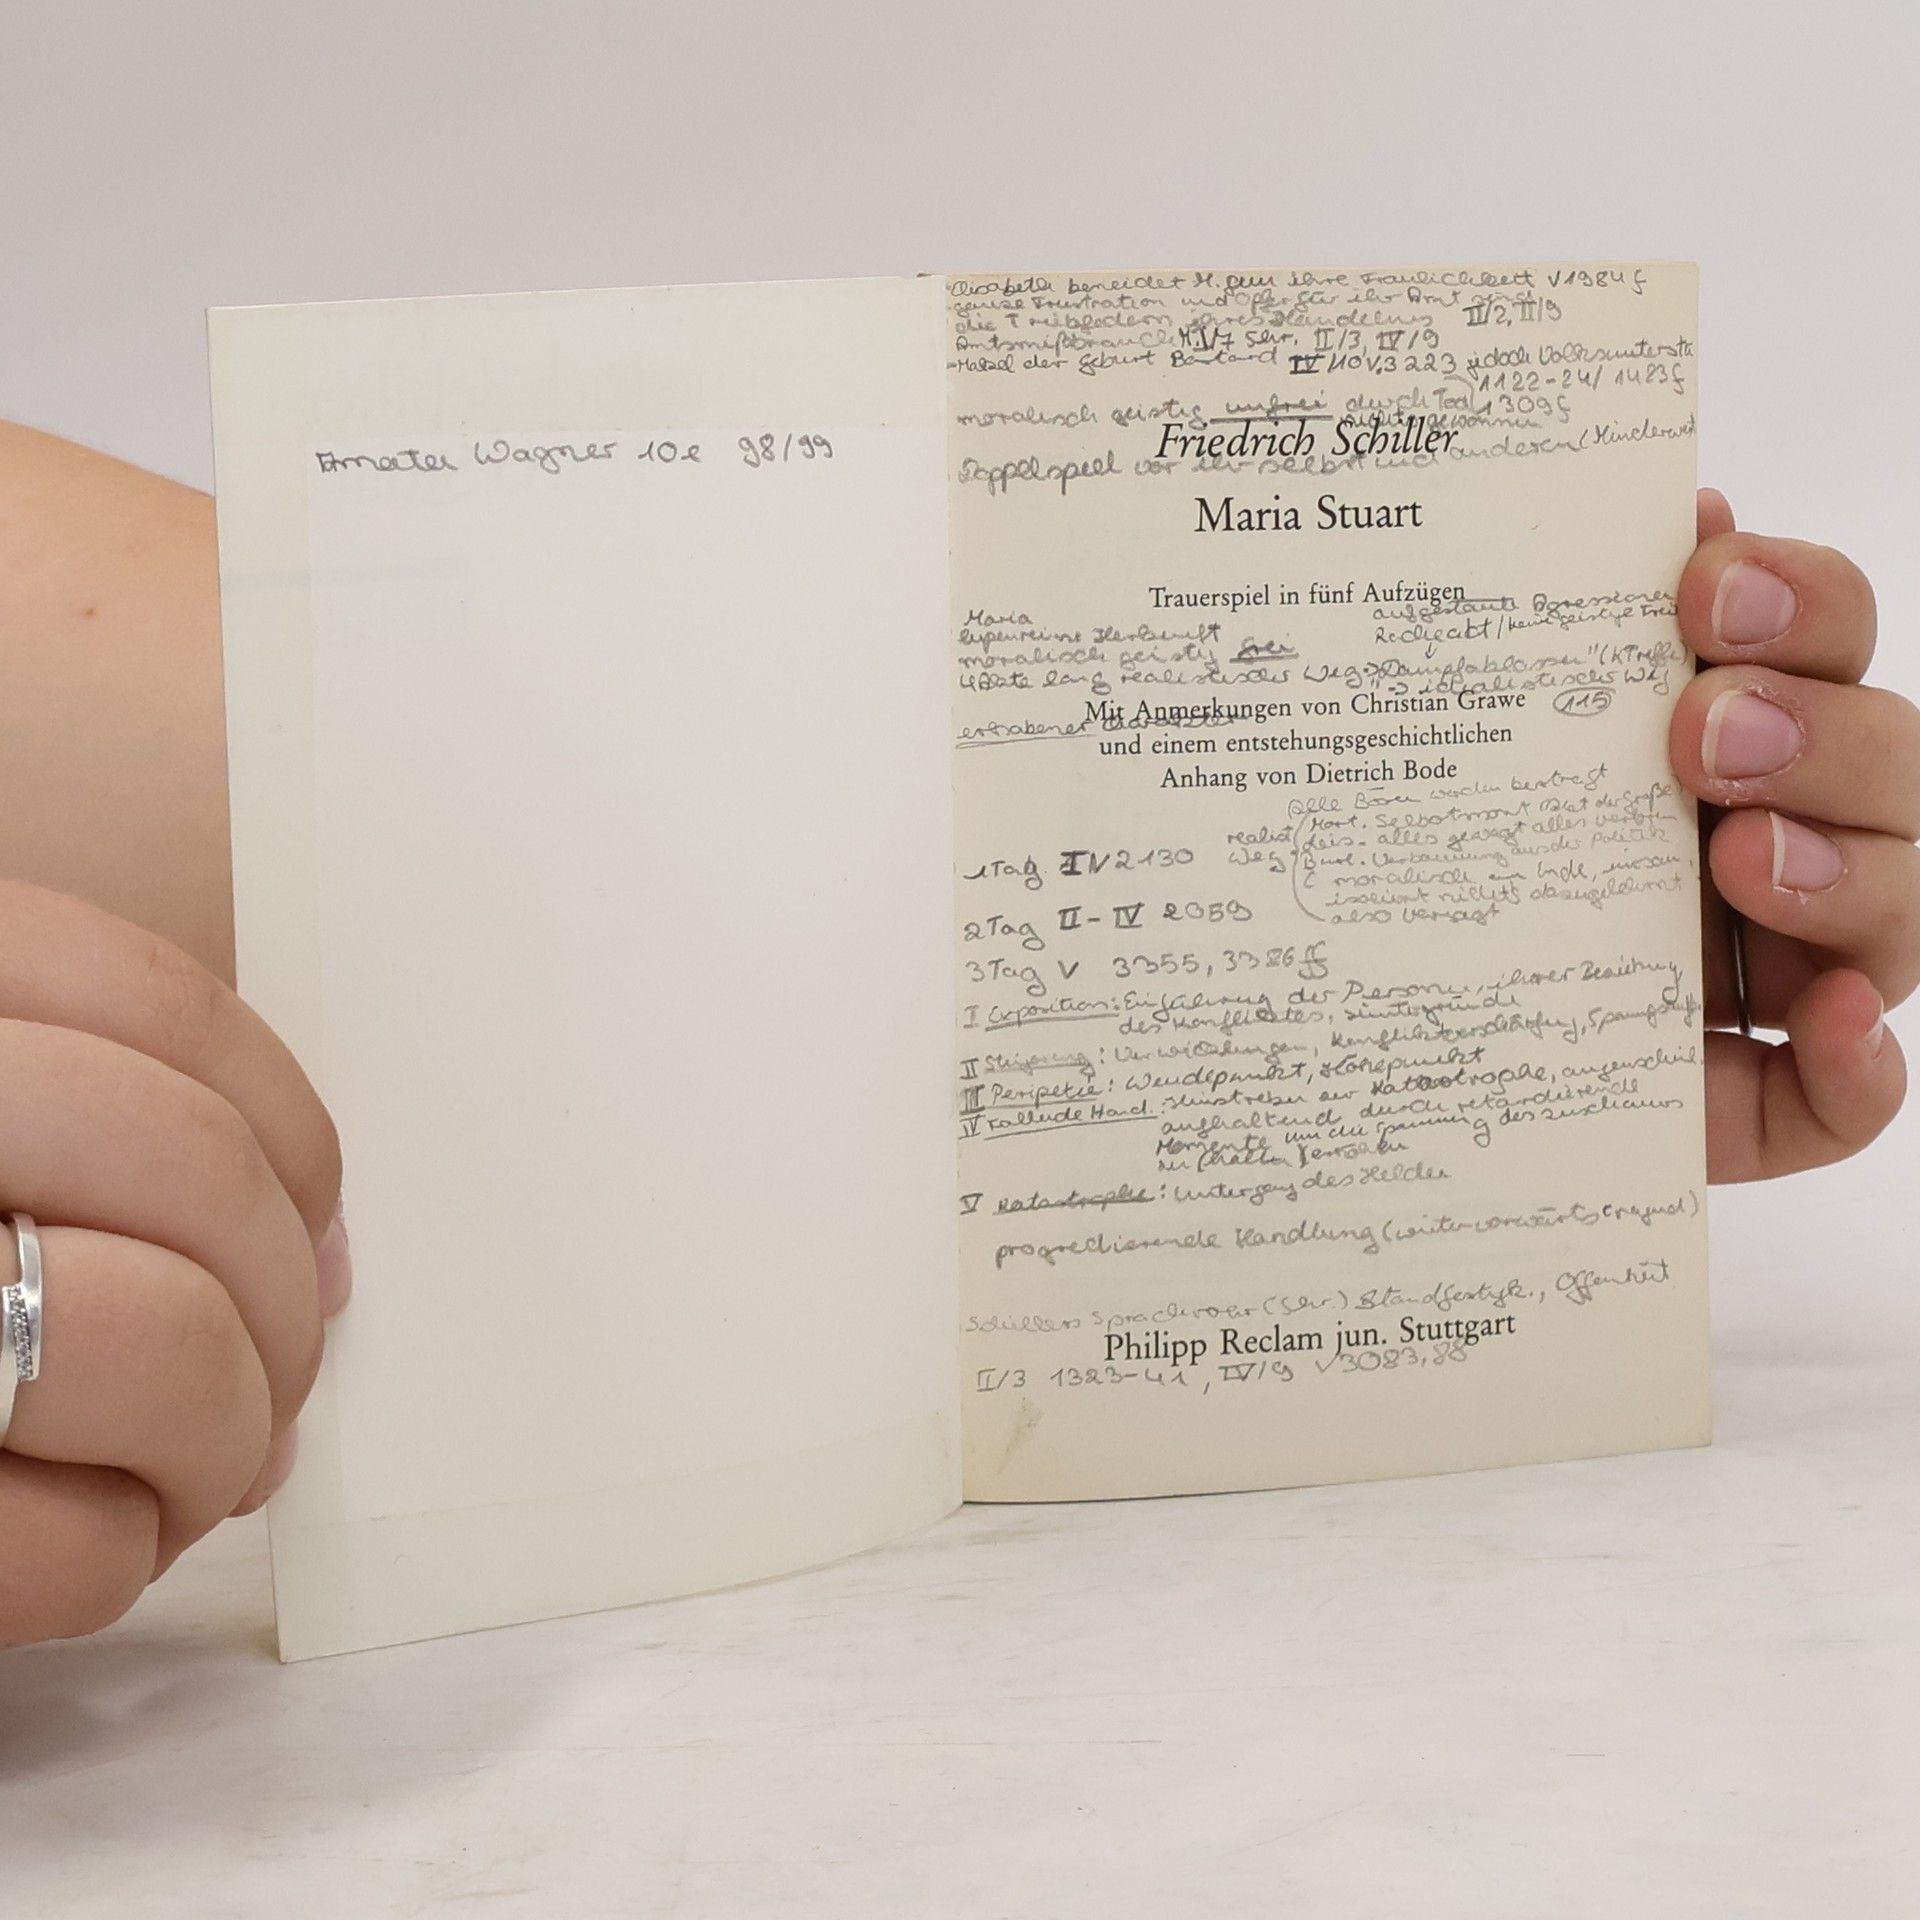 Wagner 10e 98/99
Elisabeth beneidet M. um ihre Fraulichkeit V 1984 f
ganze Frustration und Opfer für ihr Amt sind
die Triebfedern ihres Handelns II/2, II/9
Amtsmißbrauch M. I/7 Shr. II/3, IV/9
Makel der Geburt Bastard IV/10 V.3223 jedoch
1122-24/ 1423f
moralisch geistig unfrei durch Tod 1309f
nichts gewonnen
Friedrich Schiller
Doppelspiel vor ihr selbst und anderen
Maria Stuart
Trauerspiel in fünf Aufzügen
aufgestaute Agressionen
Racheakt / keine geistige Frei
Maria
lupenreine Herkunft
moralisch geistig frei
4 Akte lang realistischer Weg "Dampfablassen"
-> idealistischer Weg
Mit Anmerkungen von Christian Grawe 115
erhabener Charakter
und einem entstehungsgeschichtlichen
Anhang von Dietrich Bode
alle Bösen werden bestraft
Mort. Selbstmord
realist. Leis. alles gewagt alles verloren
Weg Burl. Verbannung aus der Politik
moralisch am Ende, einsam,
isoliert nichts dazugelernt
also versagt
1 Tag I V 2130
2 Tag II - IV 2059
3 Tag V 3355, 3386 ff
I Exposition: Einführung der Personen, ihrer Beziehung
des Konfliktes, Hintergründe
II Steigerung: Verwicklungen, Konfliktverschärfung,
III Peripetie: Wendepunkt, Höhepunkt
IV Fallende Hand.: Hinstreben zur Katastrophe,
aufhaltend durch retardierende
Momente um die Spannung des Zuschauers
zu (halten) erhöhen
V Katastrophe: Untergang des Helden
progredierende Handlung (weiter vorwärts tragend)
Schillers Sprachrohr (Shr.) Offenheit
Philipp Reclam jun. Stuttgart
II/3 1323-41, IV/9 V3083,88